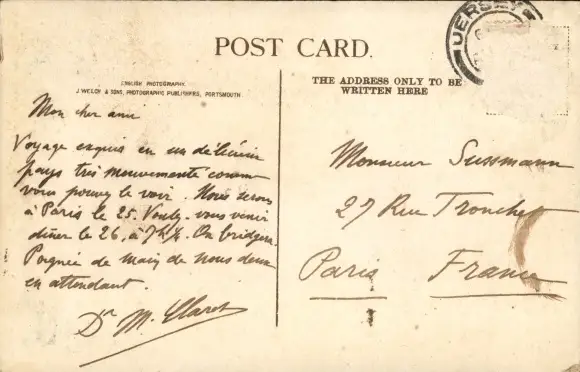 JERSEY
POST CARD.
ENGLISH PHOTOGRAPHY.
J. WELCH & SONS, PHOTOGRAPHIC PUBLISHERS, PORTSMOUTH
THE ADDRESS ONLY TO BE
WRITTEN HERE
Mon cher ami
Voyage exquis en ces délicieux
pays très mouvementé comme
vous pouvez le voir. Nous serons
à Paris le 25. Voulez-vous venir
dîner le 26, à 7h½. On bridgera
Poignée de main de nous deux
en attendant.
Dr M. Claret
Monsieur Sussmann
27 Rue Tronchet
Paris France